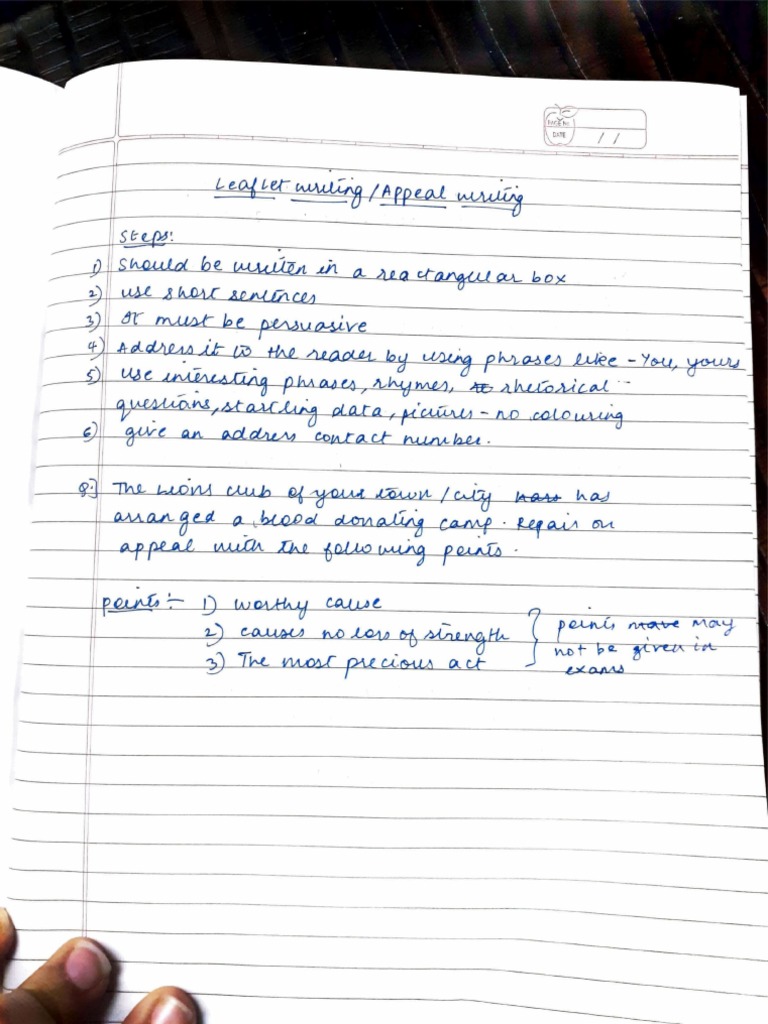 PAGE No.
DATE / /
Leaflet writing / Appeal writing
Steps:
1) Should be written in a reactangular box
2) use short sentences
3) It must be persuasive
4) Address it to the reader by using phrases like - You, yours
5) use interesting phrases, rhymes, rhetorical
questions, startling data, pictures - no colouring
6) give an address contact number.
Q:] The Lions club of your town / city has
arranged a blood donating camp. Repair on
appeal with the following points.
points :- 1) worthy cause
2) causes no loss of strength
3) The most precious act
points may
not be given in
exams